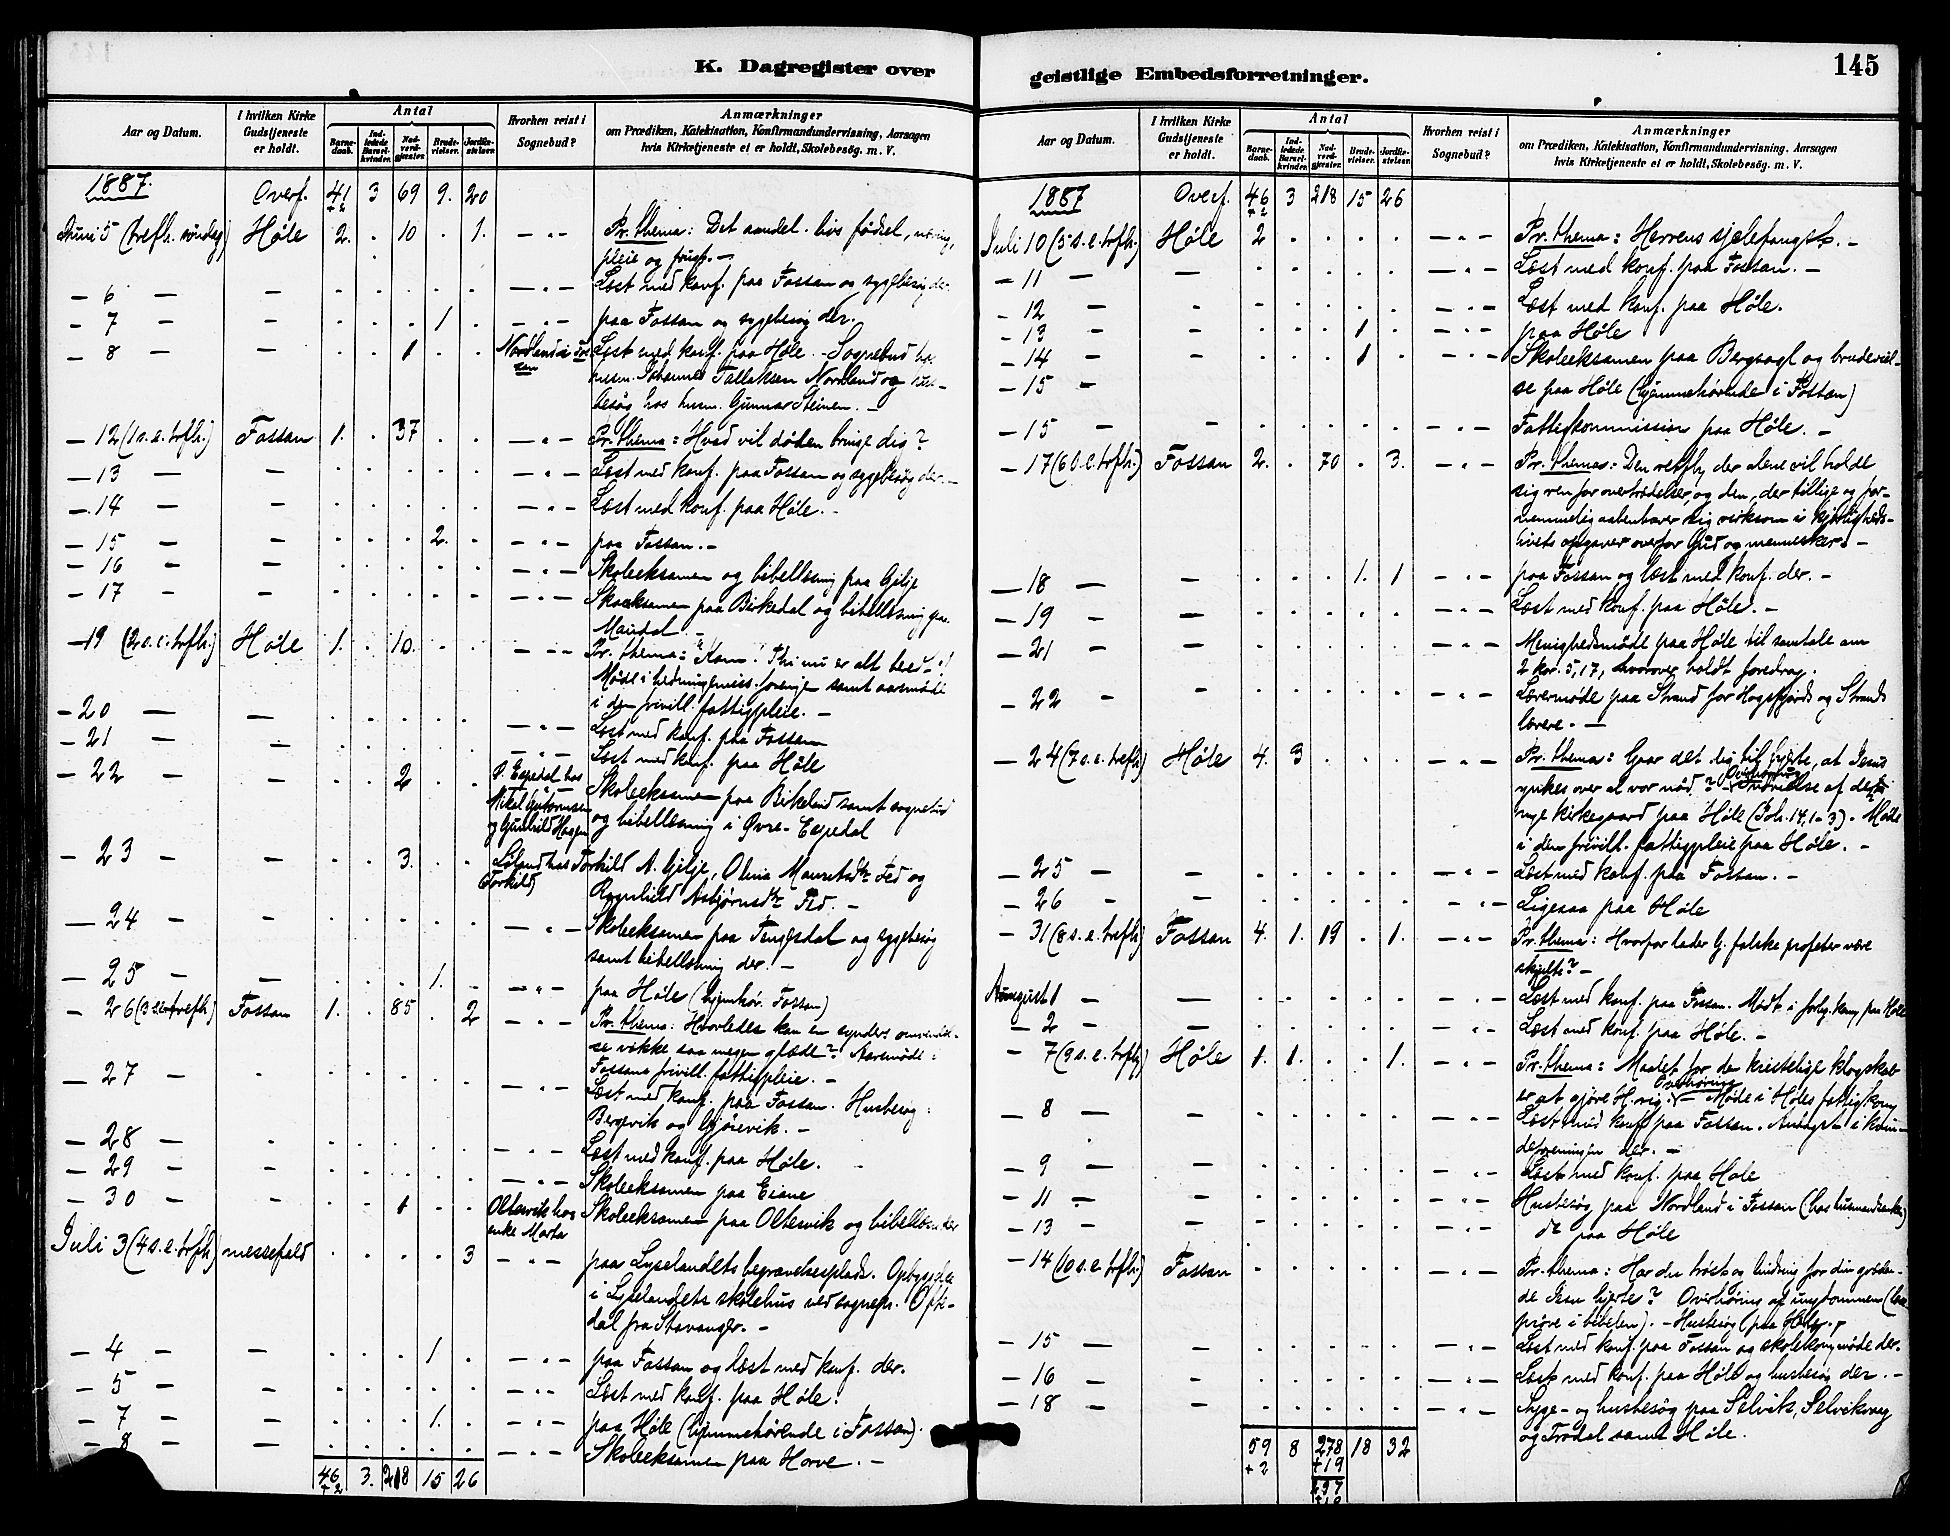 K. Dagregister over
Aar og Datum.
I hvilken Kirke Gudstjeneste er holdt.
Antal
Barnedaab.
Indledede Barselkvinder.
Nadverdgjester.
Brudevielser.
Jordfæstelser.
Hvorhen reist i Sognebud?
Anmærkninger
om Prædiken, Katekisation, Konfirmandundervisning, Aarsagen
hvis Kirketjeneste ei er holdt, Skolebesøg. m. V.
1887. Overf. 41 3 69 9. 20
+2
Juni 5 (trefh. søndag) Høle 2. . 10 . 1. — " — Pr. thema: Det aandel. livs fødsel, næring,
pleie og frugt. —
— 6 — — . . . . . — " — Læst med konf. paa Fossan og sygebesøg der.
— 7 — — . . . 1 . — " — paa Fossan og sygebesøg der.
— 8 — — . . 1 . . Nordland i Læst med konf. paa Høle. - Sognebud hos
husm. Johannes Tallaksen Nordland og
besøg hos husm. Gunnar Steinen. —
— 12 (1 s. e. trefh.) Fossan 1. . 37 . . — " — Pr. thema: Hvad vil døden bringe dig?
— 13 — — . . . . . — " — Læst med konf. paa Fossan og sygebesøg der. —
— 14 — — . . . . . — " — Læst med konf. paa Høle. —
— 15 — — . . . 2. . — " — paa Fossan. —
— 16 — — . . . . . — " — Skoleeksamen og bibellæsning paa Gilje
— 17 — — . . . . . — " — Skoleeksamen paa Birkedal og bibellæsning paa
Maudal. —
— 19 (2 s. e. trefh.) Høle 1. . 10. . . — " — Pr. thema: "Kom! Thi nu er alt beredt"!
Møde i hedningemiss. forenigen samt aarsmøde
i den frivill. fattigpleie. —
— 20 — — . . . . . — " — Læst med konf. paa Fossan
— 21 — — . . . . . — " — Læst med konf. paa Høle
— 22 — — . . 2 . . Ø. Espedal hos Skoleeksamen paa Birkeland samt sognebud
Mikal Guttormsen og bibellæsning i Øvre-Espedal
og Gunhild Haagen
— 23 — — . . 3. . . Løland hos Torkild A. Gilje, Olina Mauritsdtr Fed og
(Torkild) Ragnhild Asbjørnsdtr Fed. —
— 24 — — . . . . . — " — Skoleeksamen paa Tengesdal og sygebesøg
samt bibellæsning der. —
— 25 — — . . . 1. . — " — paa Høle (hjemhør. Fossan)
— 26 (3 s. e. trefh.) Fossan 1. . 85 . 2 — " — Pr. thema: Hvorledes kan en synders omvendel-
se vække saa megen glæde? Aarsmøde i
Fossans frivill. fattigpleie. —
— 27 — . . . . . . — " — Læst med konf. paa Fossan. Husbesøg:
Bergevik og Gjøsevik. —
— 28 — . . . . . . — " — Læst med konf. paa Høle.
— 29 — . . . . . . — " — Skoleeksamen paa Eiane
— 30 — . . . 1 . . Oltesvik hos Skoleeksamen paa Oltesvik og bibellæsn. der
enke Marta
Juli 3 (4 s. e. trefh.) messefald . . . . 3 — " — paa Lyselandets begravelsesplads. Opbyggelse
i Lyselandets skolehus ved sognepr. Ofte-
dal fra Stavanger. —
— 4 — — . . . 1 . — " — paa Fossan og læst med konf. der.
— 5 — — . . . . . — " — Læst med konf. paa Høle.
— 7 — — . . . 1. . — " — paa Høle (hjemmehørende i Fossan).
— 8 — — . . . . . — " — Skoleeksamen paa Horve. —
46 3. 218 15 26
+2
geistlige Embedsforretninger.
145
Aar og Datum.
I hvilken Kirke Gudstjeneste er holdt.
Antal
Barnedaab.
Indledede Barselkvinder.
Nadverdgjester.
Brudevielser.
Jordfæstelser.
Hvorhen reist i Sognebud?
Anmærkninger
om Prædiken, Katekisation, Konfirmandundervisning. Aarsagen
hvis Kirketjeneste ei er holdt, Skolebesøg. m. V.
1887 Overf. 46 3 218 15 26
+2
Juli 10 (5 s. e. trefh.) Høle 2 . . . . — " — Pr. thema: Herrens sjelefangst. —
— 11 — — . . . . . — " — Læst med konf. paa Fossan. —
— 12 — — . . . . . — " — Læst med konf. paa Høle.
— 13 — — . . . 1 . — " — paa Høle
— 14 — — . . . 1 . — " — Skoleeksamen paa Bergsagl og brudeviel-
— 15 — se paa Høle (hjemmehørende i Fossan)
— 15 — — . . . . . — " — Fattigkommission paa Høle. —
— 17 (6 s. e. trefh.) Fossan 2. . 70 . 3. — " — Pr. thema: Den retfly der alene vil holde
sig ren for overtrædelser, og den, der tillige og for-
nemmelig aabenbarer sig virksom i kjærligheds-
livets opgaver overfor Gud og mennesker. —
— 18 — — . . . 1. 1 — " — paa Fossan og læst med konf. der. —
— 19 — — . . . . . — " — Læst med konf. paa Høle. —
— 21 — — . . . . . — " — Menighedsmøde paa Høle til samtale om
2 Kor. 5, 17, hvorover holdt foredrag.
— 22 — — . . . . . — " — Lærermøde paa Strand for Høgsfjords og Strands
lærere. —
— 24 (7 s. e. trefh.) Høle 4. 3 . . . — " — Pr. thema: Gaar det dig til hjerte, at Jesus
ynkes over al vor nød? — Overhøring Indvielse af den
nye kirkegaard paa Høle (Joh. 14, 1-3). Møde
i den frivill. fattigpleie paa Høle. —
— 25 — — . . . . . — " — Læst med konf. paa Fossan. —
— 26 — — . . . . . — " — Ligesaa paa Høle
— 31 (8 s. e. trefh.) Fossan 4. 1. 19 . 1. — " — Pr. thema: Hvorfor lader G. falske profeter være
skjulte? —
August 1 — — . . . . . — " — Læst med konf. paa Fossan. Mødt i forlig. kom. paa Høle
— 2 — — . . . . . — " — Læst med konf. paa Høle. —
— 7 (9 s. e. trefh.) Høle 1. 1. . . 1. — " — Pr. thema: Maalet for den kristelige klogskab
er at gjøre H. rig. Overhøring — Møde i Høles fattigkom.
— 8 — — . . . . . — " — Læst med konf. paa Fossan. i kvin-
deforeningen der. —
— 9 — — . . . . . — " — Læst med konf. paa Høle
— 11 — — . . . . . — " — Husbesøg paa Nordland i Fossan (hos husmandsenke)
— 13 — — . . . . . — " — do paa Høle
— 14 (10 s. e. trefh.) Fossan . . . . . — " — Pr. thema: Har du trøst og lindring for din græden-
de Jesu hjerte? Overhøring af ungdommen (læse-
prøve i bibelen). — Husbesøg paa Helg.
— 15 — — . . . . . — " — Læst med konf. paa Fossan og skolekom. møde der.
— 16 — — . . . . . — " — Læst med konf. paa Høle og husbesøg der. —
— 18 — — . . . . . — " — Syge- og husbesøg paa Selvik, Selvikvaag
og Frødal samt Høle.
59 8 278 18 32
+2 +19
297
+19